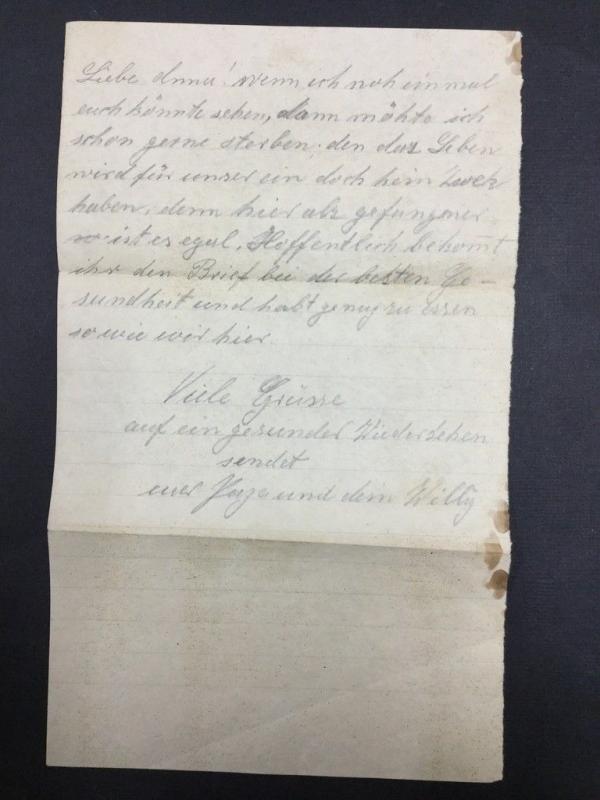 Liebe Anna! wenn ich noh ein mal
euch könnte sehen, dann möhte ich
schon gerne sterben, den das Leben
wird für unser ein doch kein Zwek
haben, denn hier als gefangener
so ist es egal. Hoffentlich bekommt
ihr den Brief bei der besten Ge-
sundheit und habt genug zu essen
so wie wir hier.
Viele Grüsse
auf ein gesundes Wiedersehen
sendet
euer und dein Willy